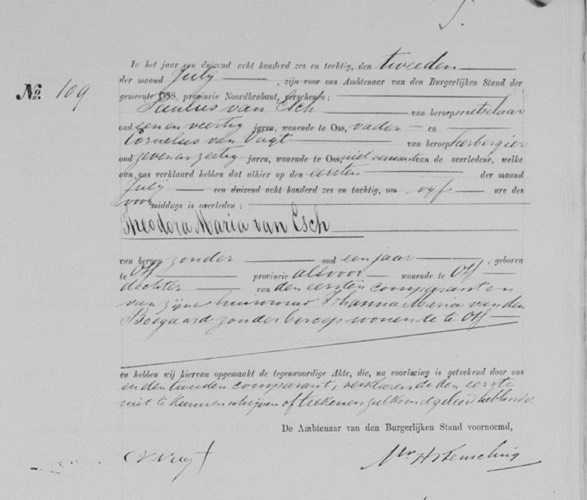 In het jaar een duizend acht honderd zes en tachtig, den tweeden
der maand Julij, zijn voor ons Ambtenaar van den Burgerlijken Stand der
No. 109
gemeente OSS, provincie Noordbrabant, verschenen:
Paulus van Esch
van beroep metselaar
oud een en veertig jaren, wonende te Oss, vader en
Cornelius van Vugt van beroep herbergier
oud zeven en zestig jaren, wonende te Oss, niet verwant van de overledene, welke
aan ons verklaard hebben dat alhier op den eersten der maand
Julij een duizend acht honderd zes en tachtig, om vijf ure des
voormiddags is overleden:
Theodora Maria van Esch
van beroep zonder oud een jaar, geboren
te Oss provincie alsvoor wonende te Oss
dochter van den eersten comparant en
van zijne huisvrouw Johanna Maria van den
Boogaard zonder beroep wonende te Oss
en hebben wij hiervan opgemaakt de tegenwoordige Akte, die, na voorlezing is geteekend door ons
en den tweeden comparant, verklarende den eerste
niet te kunnen schrijven of teekenen zulks niet geleerd hebbende
De Ambtenaar van den Burgerlijken Stand voornoemd,
C v Vugt